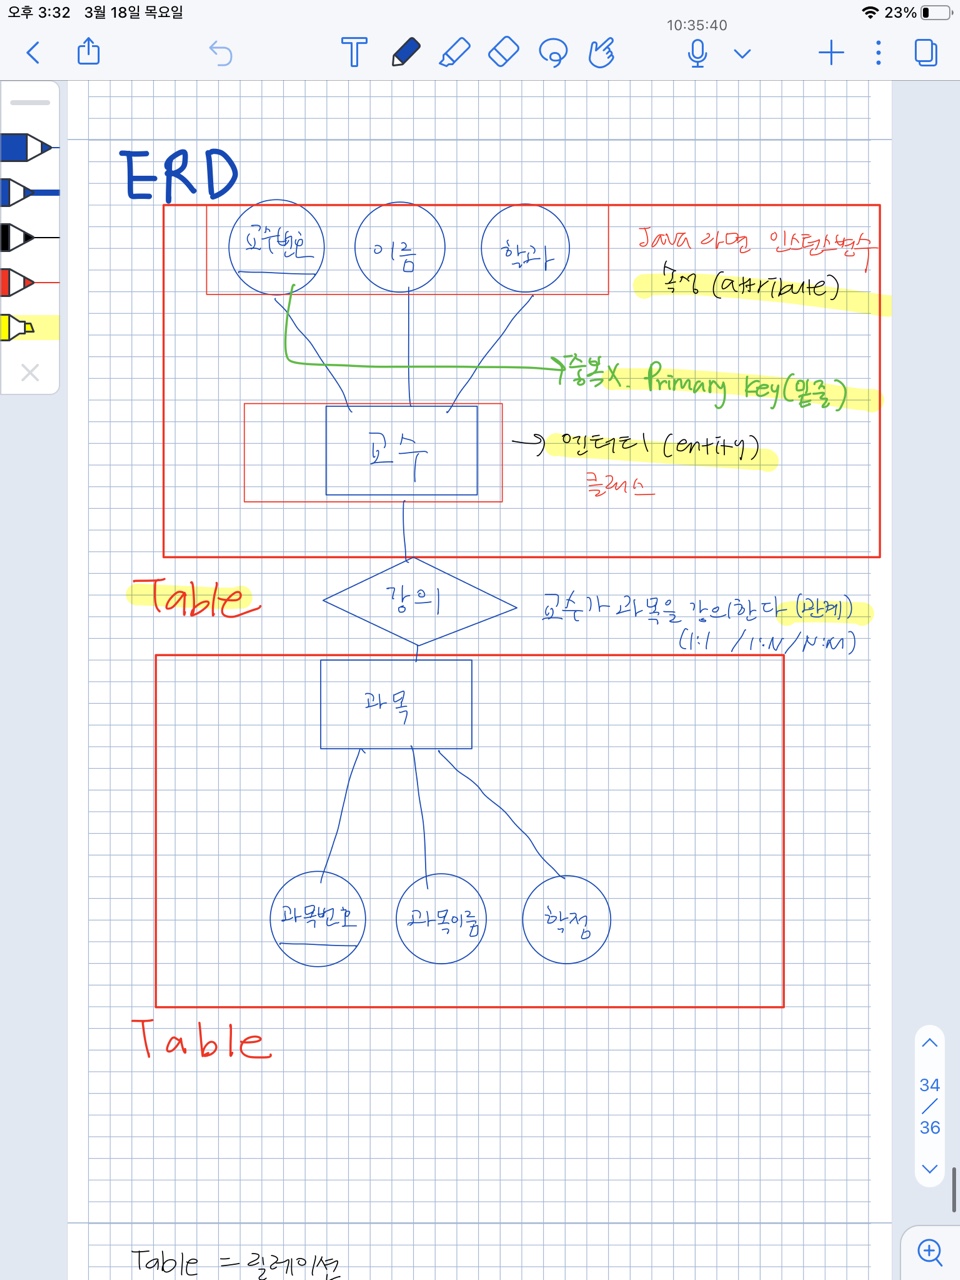 오후 3:32 3월 18일 목요일
23%
10:35:40
ERD
교수번호
이름
학과
Java 라면 인스턴스변수
속성 (attribute)
중복X. Primary key(밑줄)
교수
엔터티 (entity)
클래스
Table
강의
교수가 과목을 강의한다 (관계)
(1:1 / 1:N / N:M)
과목
과목번호
과목이름
학점
Table
34
/
36
Table = 릴레이션